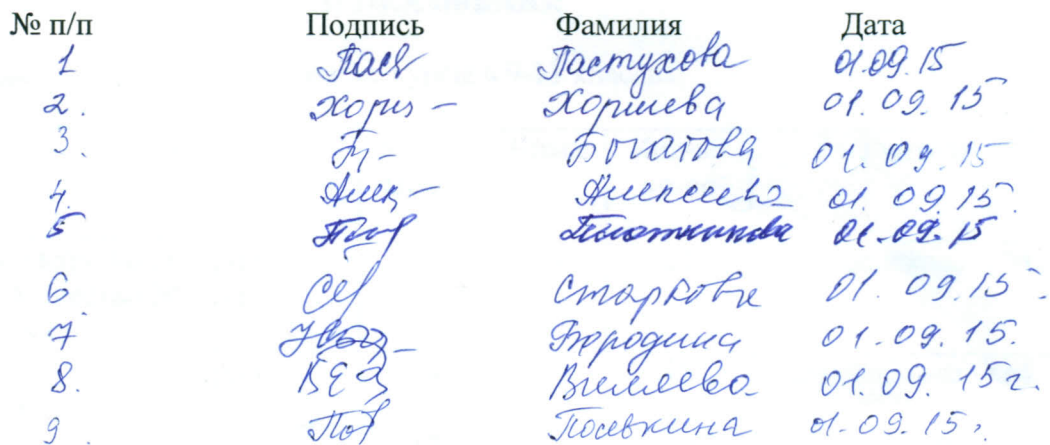 № п/п Подпись Фамилия Дата
1 Паст Пастухова 01.09.15
2. Хорш - Хоршева 01.09.15
3. Б - Богатова 01.09.15
4. Алек - Алексеева 01.09.15.
5 Плот Плотникова 01.09.15
6 Старкова 01.09.15.
7 Бородина 01.09.15.
8. 01.09.15г.
9. 01.09.15.